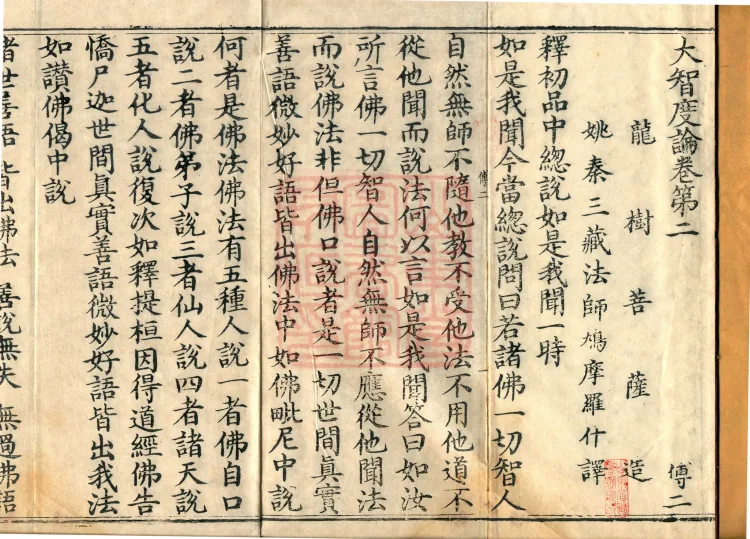 大智度論卷第二 傅二
龍樹菩薩造
姚秦三藏法師鳩摩羅什譯
釋初品中總說如是我聞一時
如是我聞今當總說問曰若諸佛一切智人
自然無師不隨他教不受他法不用他道不
傅二
從他聞而說法何以言如是我聞答曰如汝
所言佛一切智人自然無師不應從他聞法
而說佛法非但佛口說者是一切世間真實
善語微妙好語皆出佛法中如佛毗尼中說
何者是佛法佛法有五種人說一者佛自口
說二者佛弟子說三者仙人說四者諸天說
五者化人說復次如釋提桓因得道經佛告
憍尸迦世間真實善語微妙好語皆出我法
如讚佛偈中說
諸世善語 皆出佛法 善說無失 無過佛語